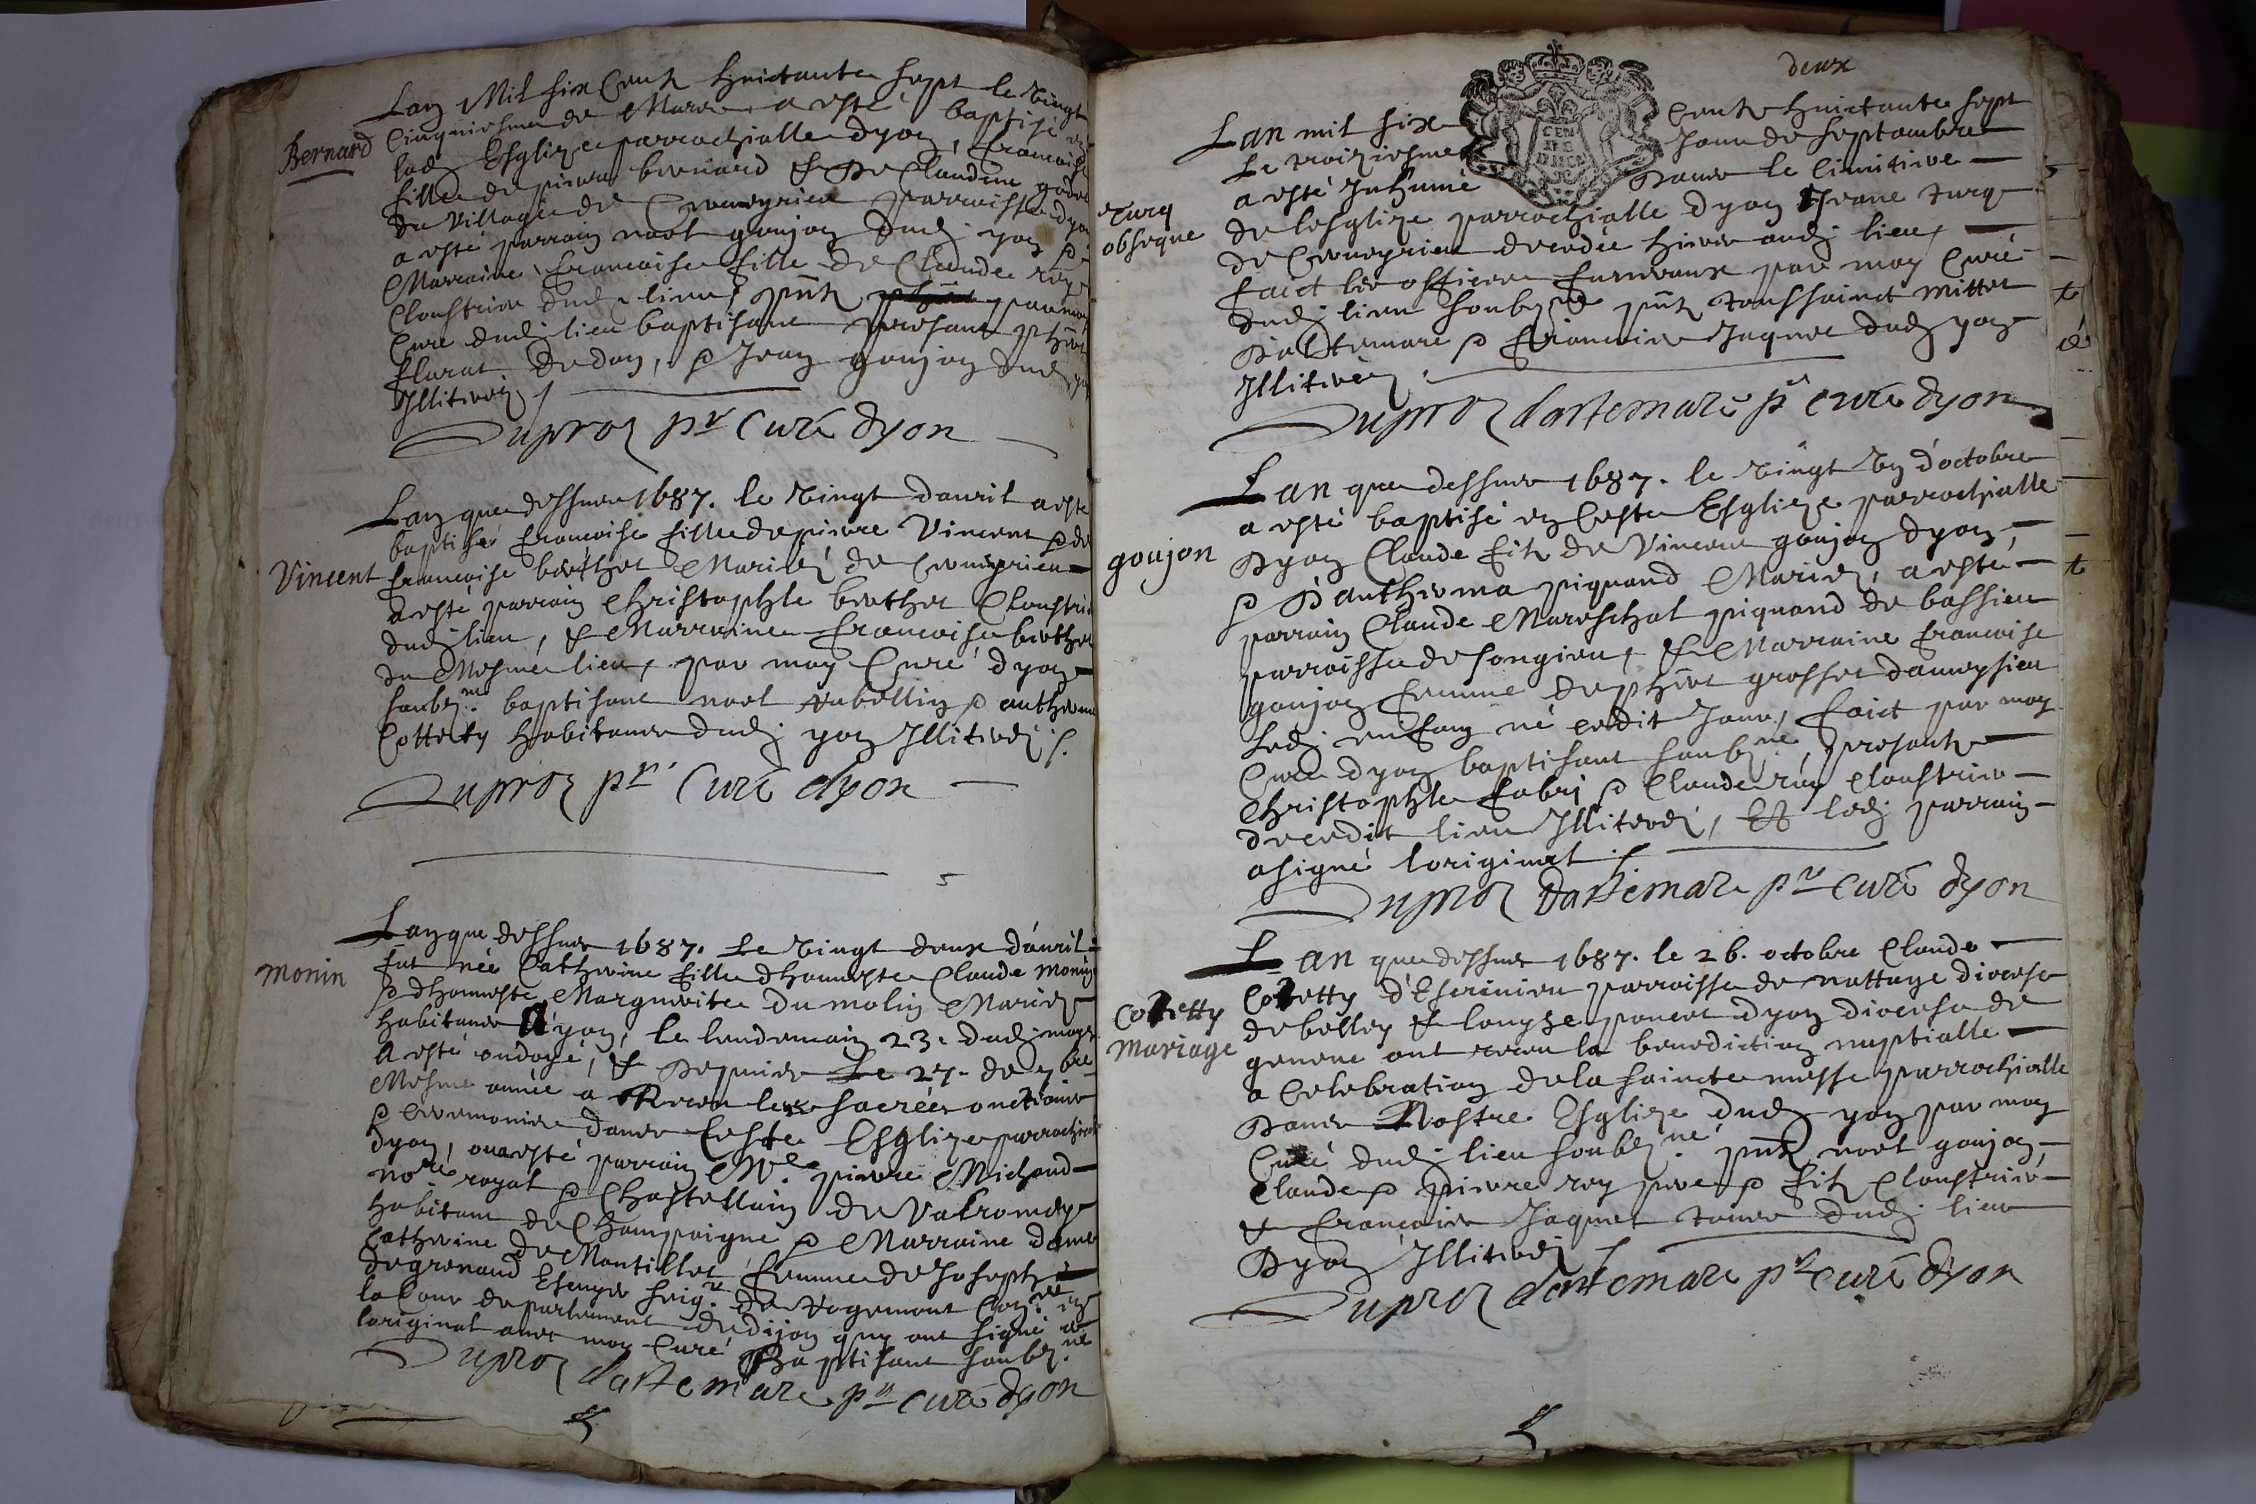 Bernard
Lan Mil six Centz huictante sept le vingt
Cinquiesme de Mars a esté baptisé en
lad. Esglize parrochialle dyon, francoise
fille de pierre bernard & de Claudine
du Village de Cerveyrieu parroisse dyon
a esté parrain noel goujon dud. yon &
Marraine francoise fille de Claude rey
Cloustrier dud. lieu, pntz par moy
Curé dud. lieu baptisant presant phert
florat dedon, & Jean goujon dud. yon
Illiterés
Duproz ptr Curé dyon
Vincent
Lan que dessus 1687. le vingt d'avril a esté
baptisé francoise fille de pierre Vincent & de
francoise berthet Mariés de Cerveyrieu
a esté parrain Christophle berthet Cloustrier
dud. lieu, & Marraine francoise berthet
du Mesme lieu, par moy Curé dyon
soubz.né baptisant noel rubellin & antherme
Cottety habitans dud. yon Illiterés
Duproz ptr Curé dyon
Monin
Lan que dessus 1687. Le vingt deux d'avril
fut née Catherine fille dhonneste Claude Monin
& dhonneste Marguerite du molin Mariés
habitans d'yon, le lendemain 23. dud. moys
A esté ondoyé, & Depuis Le 27. de 7bre
Mesme année a Receu les sacrées onctions
& ceremonies dans Ceste Esglize parrochiale
dyon, ou a esté parrain Me. pierre Michaud
nore royal & Chastellain de Valromey
habitant de Champaigne & Marraine dame
Catherine de Montillet femme de Joseph
degrenaud Escuyer seigr. de Rogemont Coner. en
la Cour de parlement de dijon quy ont signé
loriginal avec moy Curé Baptisant soubz.né
Duproz dartemare ptr curé dyon
deux
CEN
DIXCE
Turq
obseque
Lan mil six Centz huictante sept
Le troiziesme Jour de septembre
a esté Inhumé Dans le limitiere
de lesglize parrochialle dyon Jeane turq
de Cerveyrieu decedée hier aud. lieu,
faict les offices funeraux par moy Curé
dud. lieu soubzné pntz toussainct mittot
Dartemare & francois Jaquet dud. yon
Illiterés
Duproz dartemare ptr curé dyon
goujon
Lan que dessus 1687. le vingt un d'octobre
a esté baptisé en Ceste Esglize parrochialle
Dyon Claude filz de Vincent goujon dyon,
& D'antherma piquand Mariés, a esté
parrain Claude Mareschal piquand de bassieu
parroisse de songieu, & Marraine francoise
goujon femme de phert grosset dameysieu
Led. enfan né cedit Jour, faict par moy
Curé dyon baptisant soubzné, presantz
Christophle fabri & Claude rey Cloustrier
de cedit lieu Illiterés, Et led. parrain
a signé loriginal
Duproz Dartemare ptr curé dyon
Cottetty
Mariage
Lan que dessus 1687. le 26. octobre Claude
Cottetty d'Escrivieu parroisse de nattage diocese
de belley & louyze poncet dyon diocese de
geneve ont receu la benediction nuptialle
a Celebration de la saincte messe parrochialle
Dans Nostre Esglize dud. yon par moy
Curé dud. lieu soubz.né pntz noel goujon,
Claude & pierre rey pere & filz Cloustrier
& francois Jaquet tous dud. lieu
Dyon Illiterés
Duproz dartemare ptr curé dyon